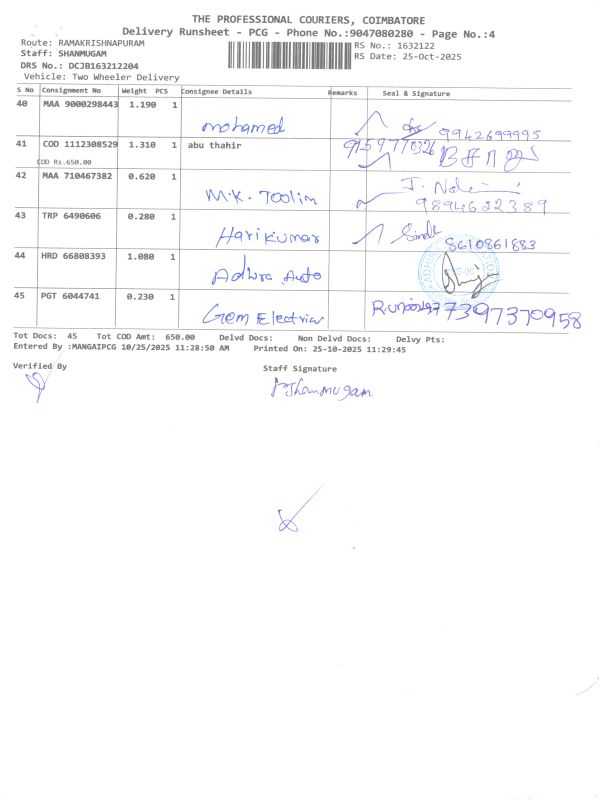 THE PROFESSIONAL COURIERS, COIMBATORE
Delivery Runsheet - PCG - Phone No.:9047080280 - Page No.:4
Route: RAMAKRISHNAPURAM
RS No.: 1632122
Staff: SHANMUGAM
RS Date: 25-Oct-2025
DRS No.: DCJB163212204
Vehicle: Two Wheeler Delivery
S No Consignment No Weight PCS Consignee Details Remarks Seal & Signature
40 MAA 9000298443 1.190 1
mohamed 9942699995
41 COD 1112308529 1.310 1 abu thahir
COD Rs.650.00
42 MAA 710467382 0.620 1
M.K. Toolim 9894622389
43 TRP 6490606 0.280 1
Harikumar 8610861883
44 HRD 66808393 1.080 1
Adhra Auto
45 PGT 6044741 0.230 1
Gem Electrics 7397370958
Tot Docs: 45 Tot COD Amt: 650.00 Delvd Docs: Non Delvd Docs: Delvy Pts:
Entered By :MANGAIPCG 10/25/2025 11:28:50 AM Printed On: 25-10-2025 11:29:45
Verified By Staff Signature
Shanmugam